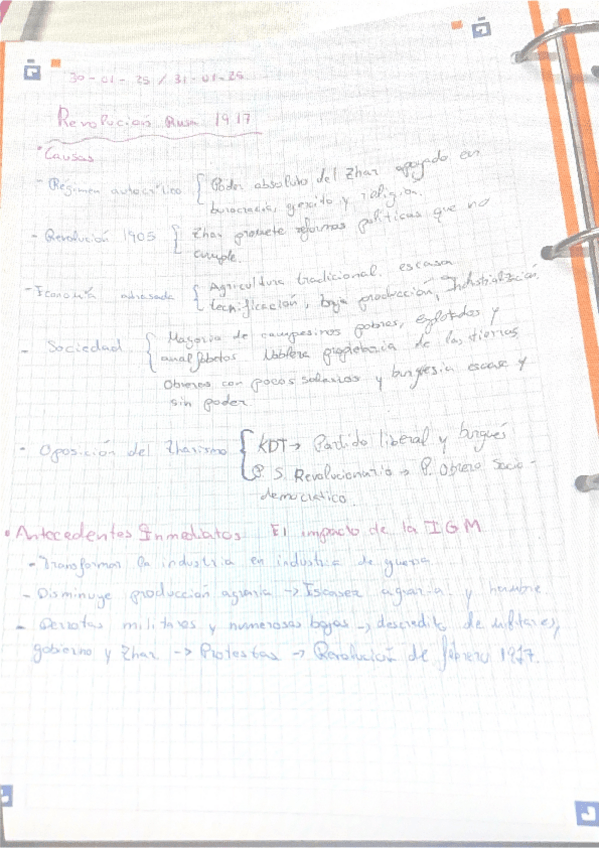 30-01-25 / 31-01-25
Revolución Rusa 1917
• Causas
- Régimen autocrático { Poder absoluto del Zhar apoyado en
burocracia, ejercito y religion.
- Revolución 1905 { Zhar promete reformas políticas que no
cumple.
- Economía atrasada { Agricultura tradicional. escasa
tecnificación, baja producción, industrialización
- Sociedad { Mayoria de campesinos pobres, explotados y
analfabetos. Nobleza propietaria de las tierras
Obreros con pocos salarios y burguesia escasa y
sin poder.
- Oposición del Zharismo { KDT → Partido liberal y burgués
P. S. Revolucionario → P. Obrero Socio-
democratico.
• Antecedentes Inmediatos El impacto de la IGM
- Transformar la industria en industria de guerra
- Disminuye producción agraria → Escasez agraria y hambre.
- Derrotas militares y numerosas bajas → descredito de militares,
gobierno y Zhar → Protestas → Revolución de febrero 1917.